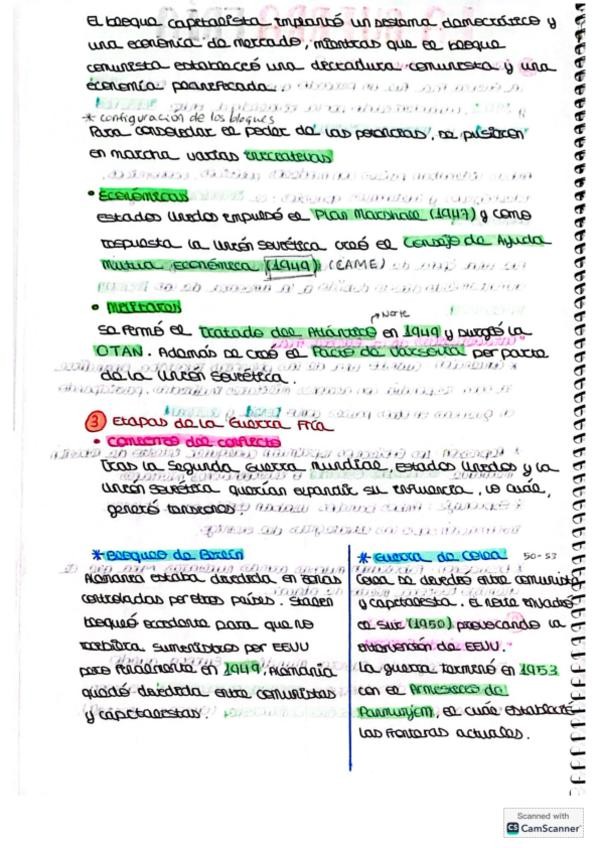 El bloque capitalista implantó un sistema democrático y
una economía de mercado, mientras que el bloque
comunista estableció una dictadura comunista y una
economía planificada.
* configuración de los bloques
Para consolidar el poder de las potencias, se pusieron
en marcha varias iniciativas
• Económicas
Estados Unidos impulsó el Plan Marshall (1947) y como
respuesta la Unión Soviética creó el Consejo de Ayuda
Mutua Económica (1949) (CAME)
• Militares
Se firmó el Tratado del Atlántico Norte en 1949 y surgió la
OTAN. Además se creó el Pacto de Varsovia por parte
de la Unión Soviética.
3 Etapas de la Guerra Fría
• Comienzos del conflicto
Tras la Segunda Guerra Mundial, Estados Unidos y la
Unión Soviética querían expandir su influencia, lo cuál,
generó tensiones.
* Bloqueo de Berlín
Alemania estaba dividida en zonas
controladas por otros países. Stalin
bloqueó occidente para que no
recibiera suministros por EEUU
pero finalmente en 1949, Alemania
quedó dividida entre comunistas
y capitalistas.
* Guerra de Corea 50-53
Corea se dividió entre comunista
y capitalista. El norte invadió
el sur (1950) provocando la
intervención de EEUU.
La guerra terminó en 1953
con el Armisticio de
Panmunjom, el cuál estableció
las fronteras actuales.
Scanned with
CS CamScanner